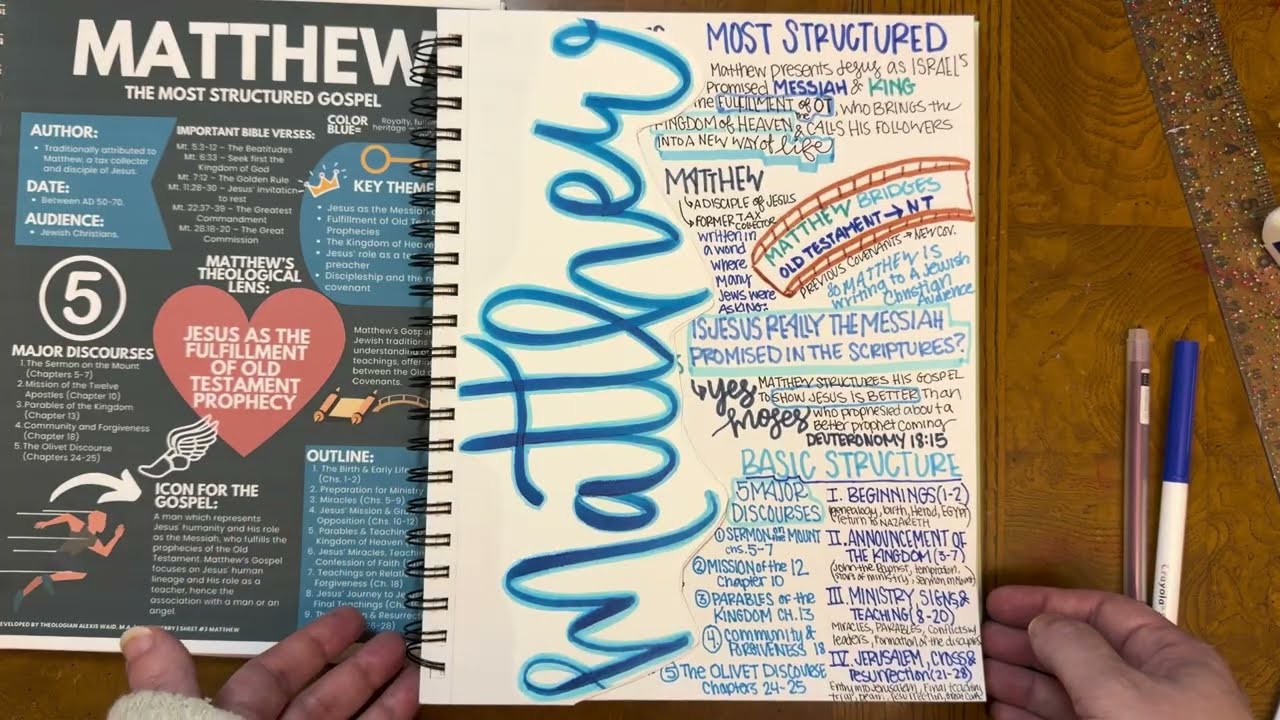 MATTHEW
THE MOST STRUCTURED GOSPEL
AUTHOR:
• Traditionally attributed to
Matthew, a tax collector
and disciple of Jesus.
DATE:
• Between AD 50-70.
AUDIENCE:
• Jewish Christians.
IMPORTANT BIBLE VERSES:
Mt. 5:3-12 - The Beatitudes
Mt. 6:33 - Seek first the
Kingdom of God
Mt. 7:12 - The Golden Rule
Mt. 11:28-30 - Jesus' invitation
to rest
Mt. 22:37-39 - The Greatest
Commandment
Mt. 28:18-20 - The Great
Commission
COLOR
BLUE=
Royalty,
heritage
KEY THEME
• Jesus as the Messiah
• Fulfillment of Old
Prophecies
• The Kingdom of
• Jesus' role as a
preacher
• Discipleship and the
covenant
5
MAJOR DISCOURSES
1. The Sermon on the
Mount (Chapters 5-7)
2. Mission of the Twelve
Apostles (Chapter 10)
3. Parables of the Kingdom
(Chapter 13)
4. Community and Forgiveness
(Chapter 18)
5. The Olivet Discourse
(Chapters 24-25)
MATTHEW'S
THEOLOGICAL
LENS:
JESUS AS THE
FULFILLMENT
OF OLD
TESTAMENT
PROPHECY
Matthew's
Jewish
understanding
teachings,
between the Old
Covenants.
ICON FOR THE
GOSPEL:
A man which represents
Jesus' humanity and His role
as the Messiah, who fulfills the
prophecies of the Old
Testament. Matthew's Gospel
focuses on Jesus' human
lineage and His role as a
teacher, hence the
association with a man or an
angel.
OUTLINE:
1. The Birth & Early
(Chs. 1-2)
2. Preparation for Ministry
3. Miracles (Chs. 5-9)
4. Jesus' Mission &
Opposition (Chs. 10-12)
5. Parables &
Kingdom of
6. Jesus' Miracles,
Confession of Faith
7. Teachings on
Forgiveness (Ch. 18)
8. Jesus' Journey to
Final Teachings
BY THEOLOGIAN ALEXIS WAID, M.A.
SHEET #3 MATTHEW
Matthew
MOST STRUCTURED
Matthew presents Jesus as ISRAEL's
Promised MESSIAH & KING
the FULFILLMENT of OT, WHO BRINGS the
KINGDOM of HEAVEN & CALLS HIS FOLLOWERS
INTO A NEW WAY of life
MATTHEW
↳ A DISCIPLE OF JESUS
↳ FORMER TAX
COLLECTOR
written in
a world
where
Many
Jews were
ASKING:
MATTHEW BRIDGES
OLD TESTAMENT → NT
PREVIOUS COVENANTS → NEW COV.
SO MATTHEW IS
writing to A Jewish
Christian
Audience
IS JESUS REALLY THE MESSIAH
PROMISED IN THE SCRIPTURES?
↳ Yes MATTHEW STRUCTURES HIS GOSPEL
TO SHOW JESUS IS BETTER Than
Moses who prophesied about a
Better prophet coming
DEUTERONOMY 18:15
BASIC STRUCTURE
5 MAJOR
DISCOURSES
① SERMON on the MOUNT
chs. 5-7
② MISSION of the 12
Chapter 10
③ PARABLES OF the
KINGDOM CH. 13
④ Community &
FORGIVENESS 18
⑤ The OLIVET DISCOURSE
Chapters 24-25
I. BEGINNINGS (1-2)
genealogy, birth, Herod, EGYPT
return to NAZARETH
II. ANNOUNCEMENT OF
THE KINGDOM (3-7)
John the Baptist, temptation,
start of ministry, sermon
III. MINISTRY, SIGNS &
TEACHING (8-20)
MIRACLES, PARABLES, Conflicts w/
leaders, Formation of the disciples
IV. JERUSALEM, CROSS &
Resurrection (21-28)
Entry into Jerusalem, Final teaching
trial, death, resurrection,
Crayola